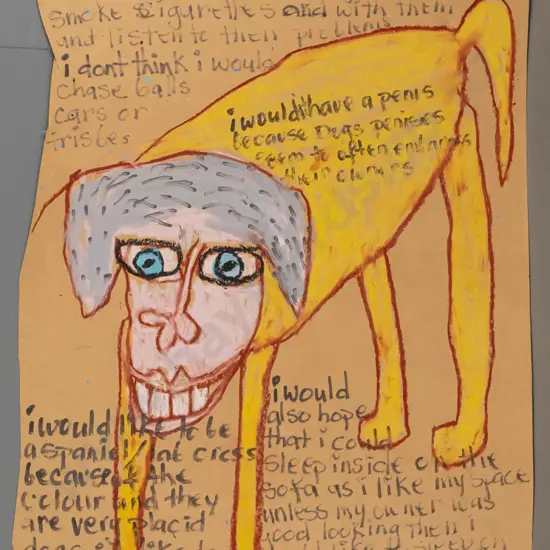 smoke sigurettes and with them
and listen to their problems
i dont think i would
chase balls
cars or
frisbes
i wouldnt have a penis
because Dogs penises
seem to often embarras
their owners
i would like to be
a spaniel / lab cross
because of the
colour and they
are very placid
dogs i like to
i would
also hope
that i could
sleep inside on the
sofa as i like my space
unless my owner was
good looking then i
would like to sleep on